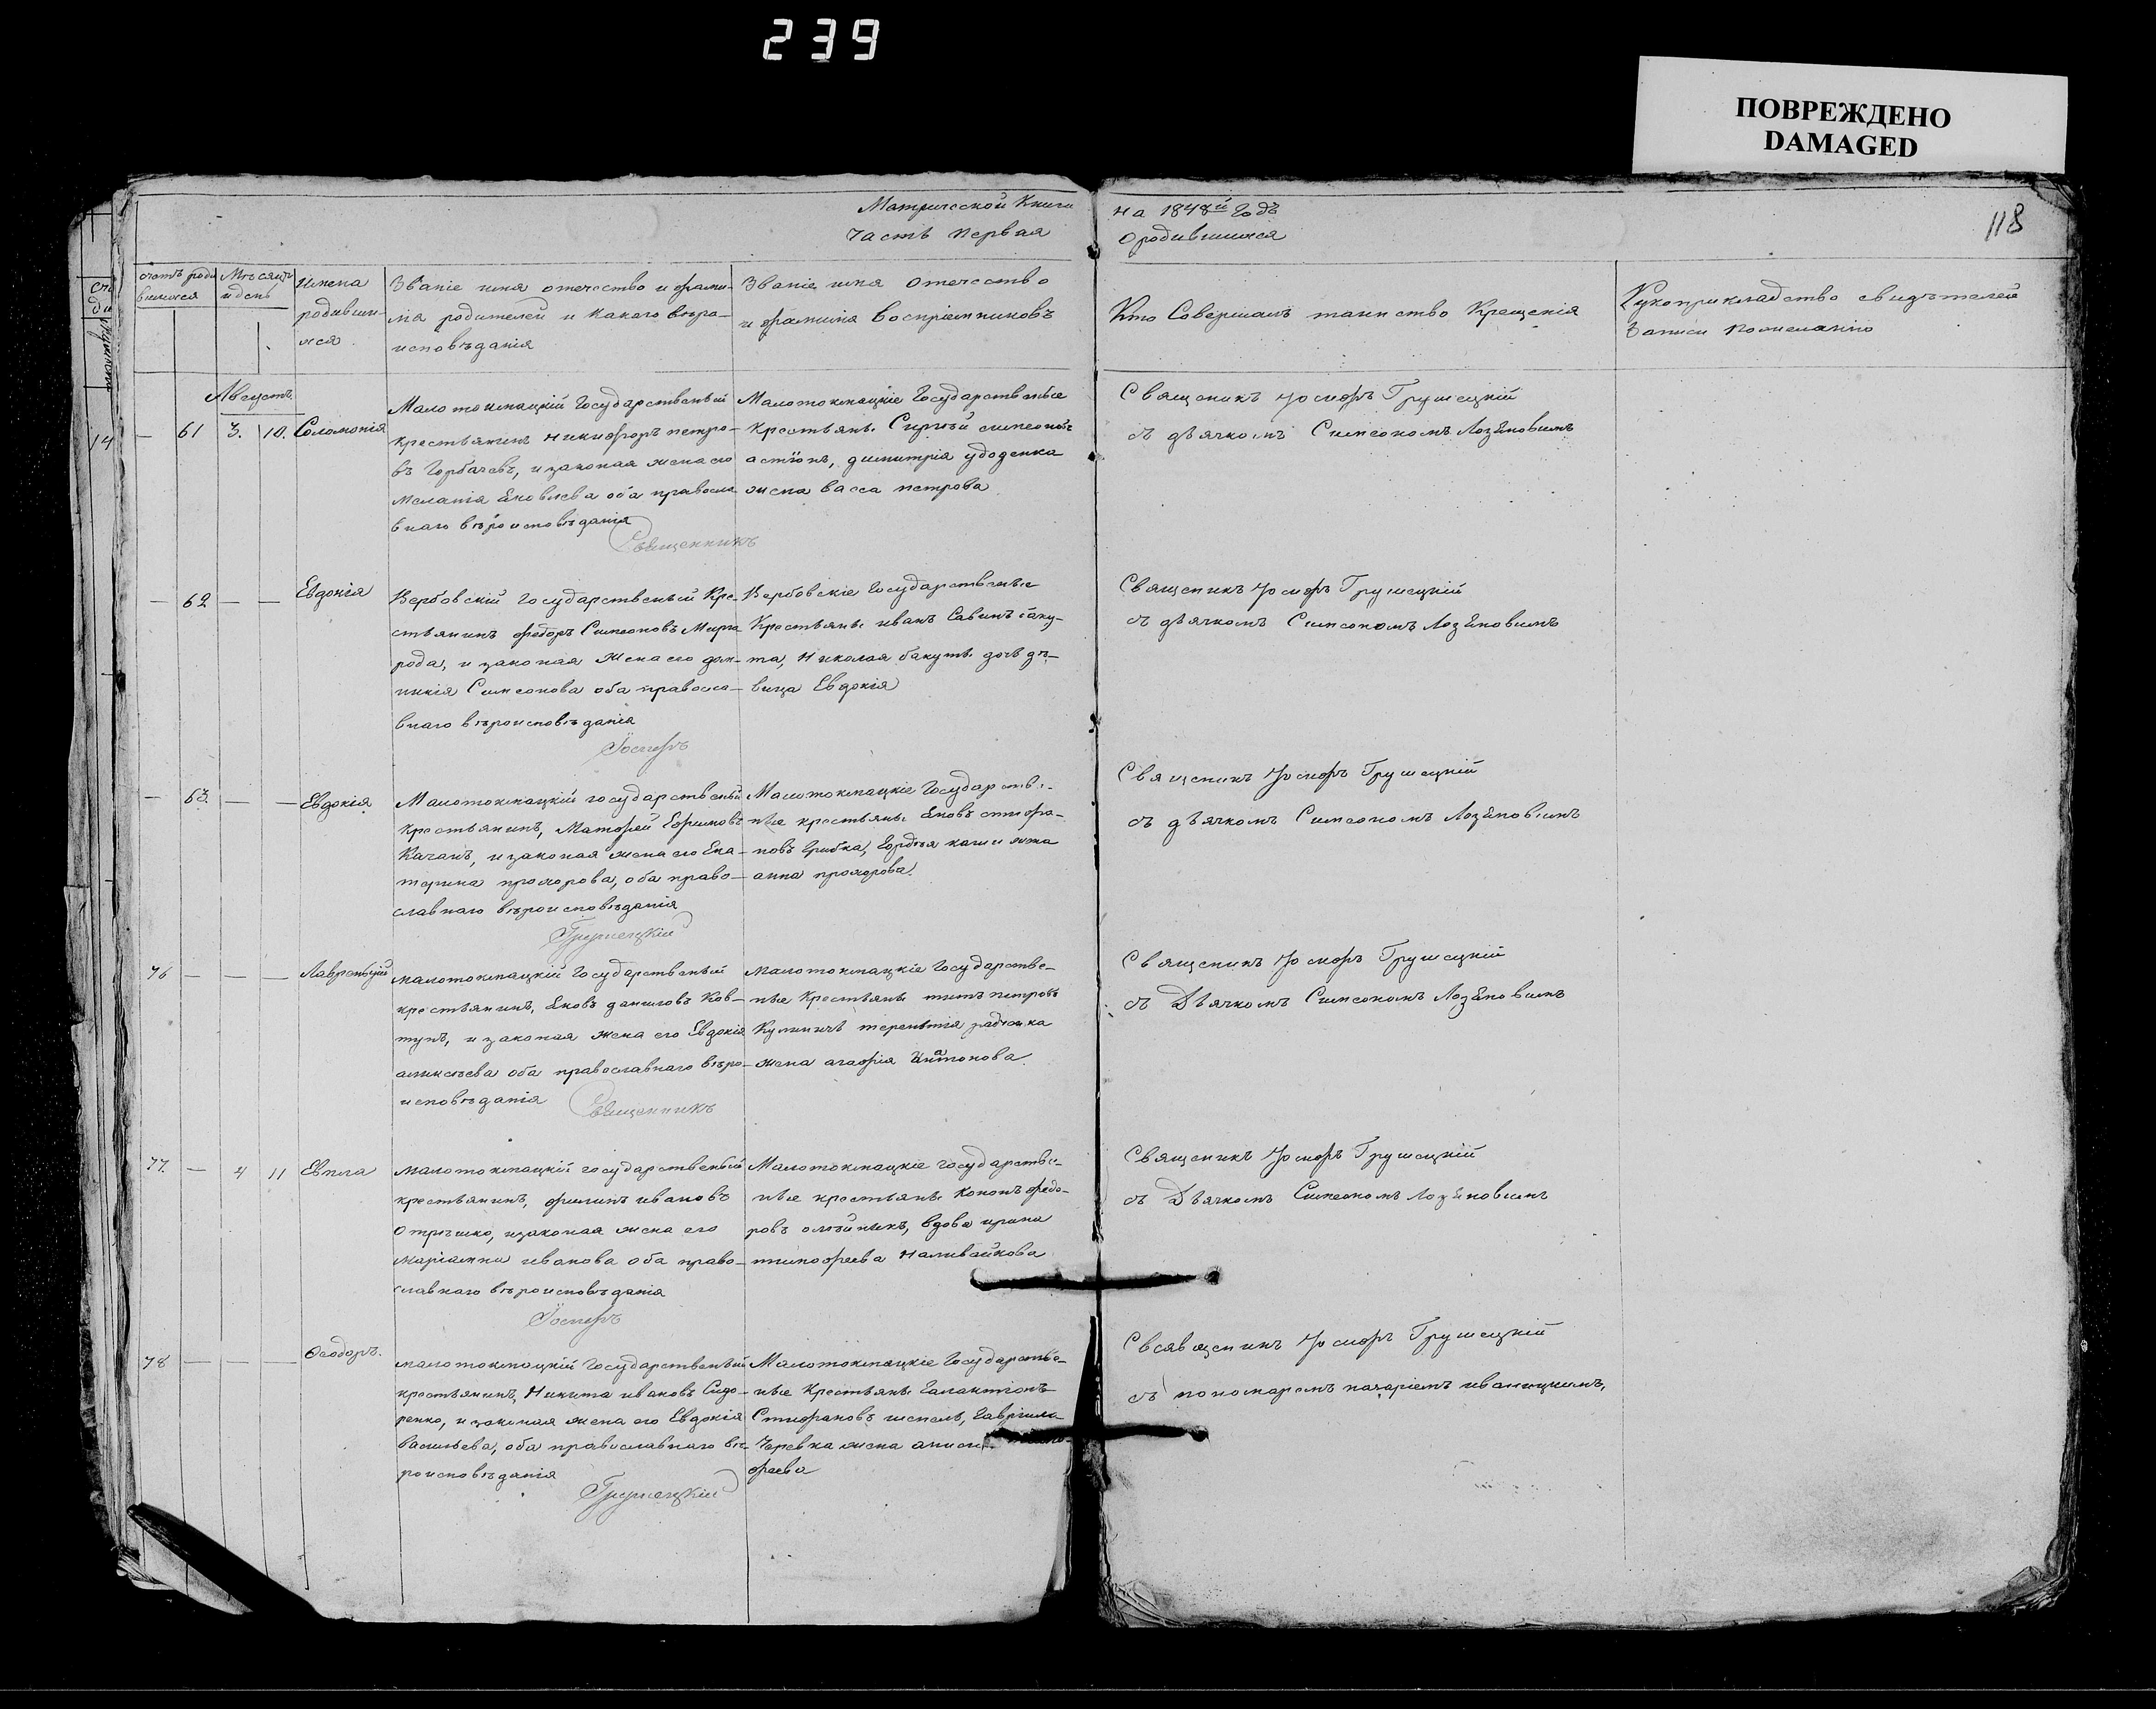 239
ПОВРЕЖДЕНО
DAMAGED
118
Метрической Книги
часть первая
на 1848й Годъ
О родившихся
счетъ роди
вшихся
Мѣсяцъ
и день
Имена
родивши-
хся
Званіе имя отечество и фами-
лія родителей и какого вѣро-
исповѣданія
Званіе имя отечество
и фамилія воспріемниковъ
Кто Совершалъ таинство Крещенія
Рукоприкладство свидѣтелей
записи по желанію
Августъ
14
— 61 3. 10. Соломонія
Малотокмацкій Государственый
крестьянинъ никифоръ петро-
въ Горбачевъ, и законая жена его
Меланія Яковлева оба правосла
внаго вѣроисповѣданія
Священникъ
Малотокмацкіе Государственые
крестьяне Сергѣй
димитрія удоденка
жена васса петрова
Священикъ Иосифъ Грушецкій
съ дьячкомъ Симеономъ Лозяновимъ
— 62 — — Евдокія
Вербовскій государственый Кре-
стьянинъ федоръ Симеоновъ Мирго
рода, и законая жена его дом-
никія Симеонова оба правосла-
внаго вѣроисповѣданія
Іосифъ
Вербовскіе Государственые
Крестьяне иванъ Савинъ баку-
та, николая бакуты дочь дѣ-
вица Евдокія
Священикъ Иосифъ Грушецкій
съ дьячкомъ Симеономъ Лозяновимъ
— 63. — — Евдокія
Малотокмацкій государственый
Крестьянинъ, Матфей Ефимовъ
Качанъ, и законая жена его Ека-
терина прохорова, оба право-
славнаго вѣроисповѣданія
Грушецкій
Малотокмацкіе Государстве-
ные крестьяне Яковъ стефа-
новъ Грибка, Гордѣя жена
анна прохорова
Священикъ Иосифъ Грушецкій
съ дьячкомъ Симеономъ Лозяновимъ
76 — — — Лаврентій
малотокмацкій Государственый
крестьянинъ, Яковъ даниловъ Ков-
тунъ, и законая жена его Евдокія
аликсѣева оба православнаго вѣро-
исповѣданія
Священникъ
малотокмацкіе Государстве-
ные Крестьяне титъ петровъ
Кулиничъ терентія радченка
жена агафія Антонова
Священикъ Иосифъ Грушецкій
съ Дьячкомъ Симеономъ Лозяновимъ
77. — 4 11 Евпла
малотокмацкій государственый
крестьянинъ, филипъ ивановъ
Отрѣшко, изаконая жена его
маріамна иванова оба право-
славнаго вѣроисповѣданія
Іосифъ
Малотокмацкіе государстве-
ные крестьяне Кононъ федо-
ровъ олѣйникъ, вдова ирина
тимофеева Наливайкова
Священикъ Иосифъ Грушецкій
съ Дьячкомъ Симеономъ Лозяновимъ
78 — — — Феодоръ.
малотокмацкій Государственый
крестьянинъ, Никита ивановъ Сидо-
ренко, и законая жена его Евдокія
василіева, оба православнаго вѣ-
роисповѣданія
Грушецкій
Малотокмацкіе Государстве-
ные Крестьяне Галактіонъ
Стефановъ Гавріила
Черевка жена
феева
Всявщеникъ Иосифъ Грушецкій
съ пономаремъ назаріемъ иваницкимъ,